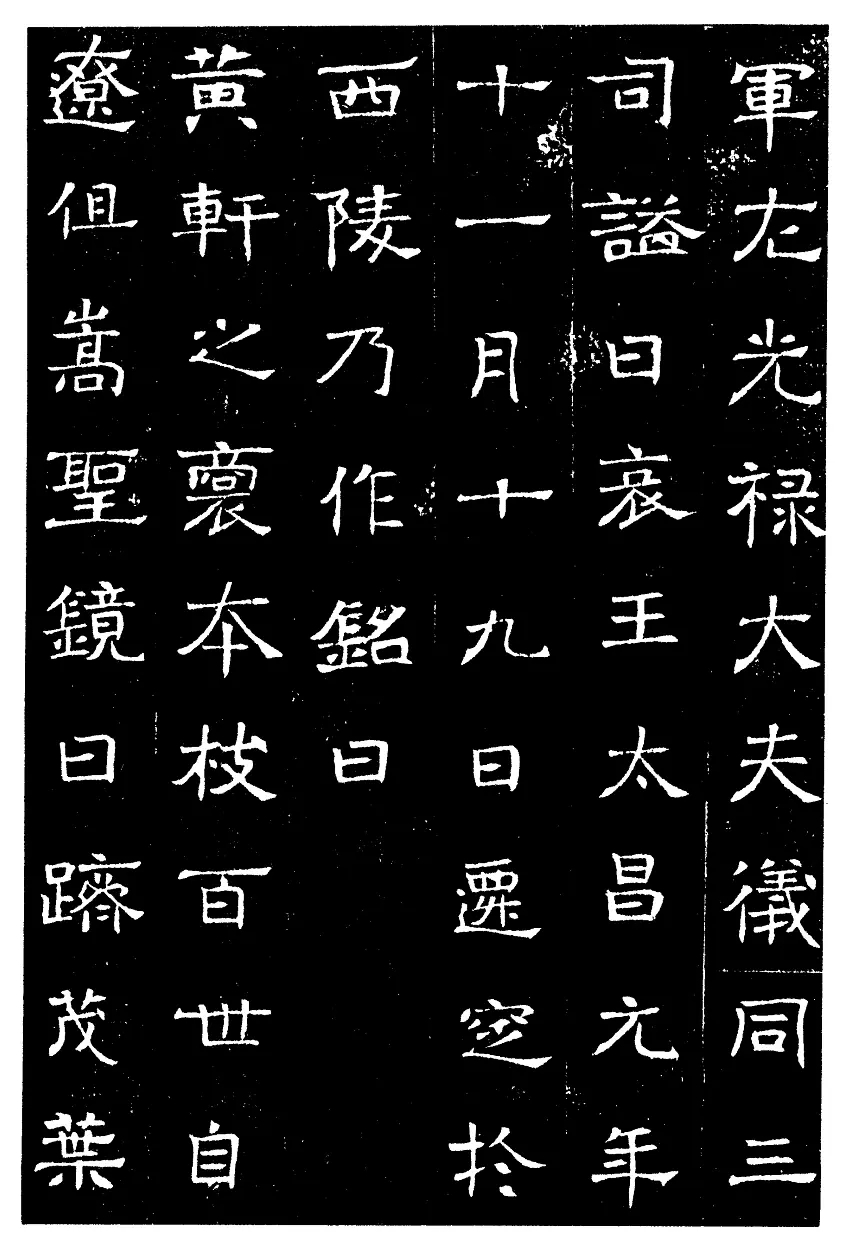 軍左光禄大夫儀同三
司謚曰哀王太昌元年
十一月十九日遷窆於
西陵乃作銘曰
黄軒之裔本枝百世自
遼徂嵩聖鏡日躋茂葉